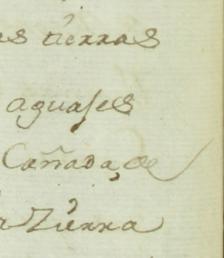 as tierras
aguajes
Cañada, de
a Zierra